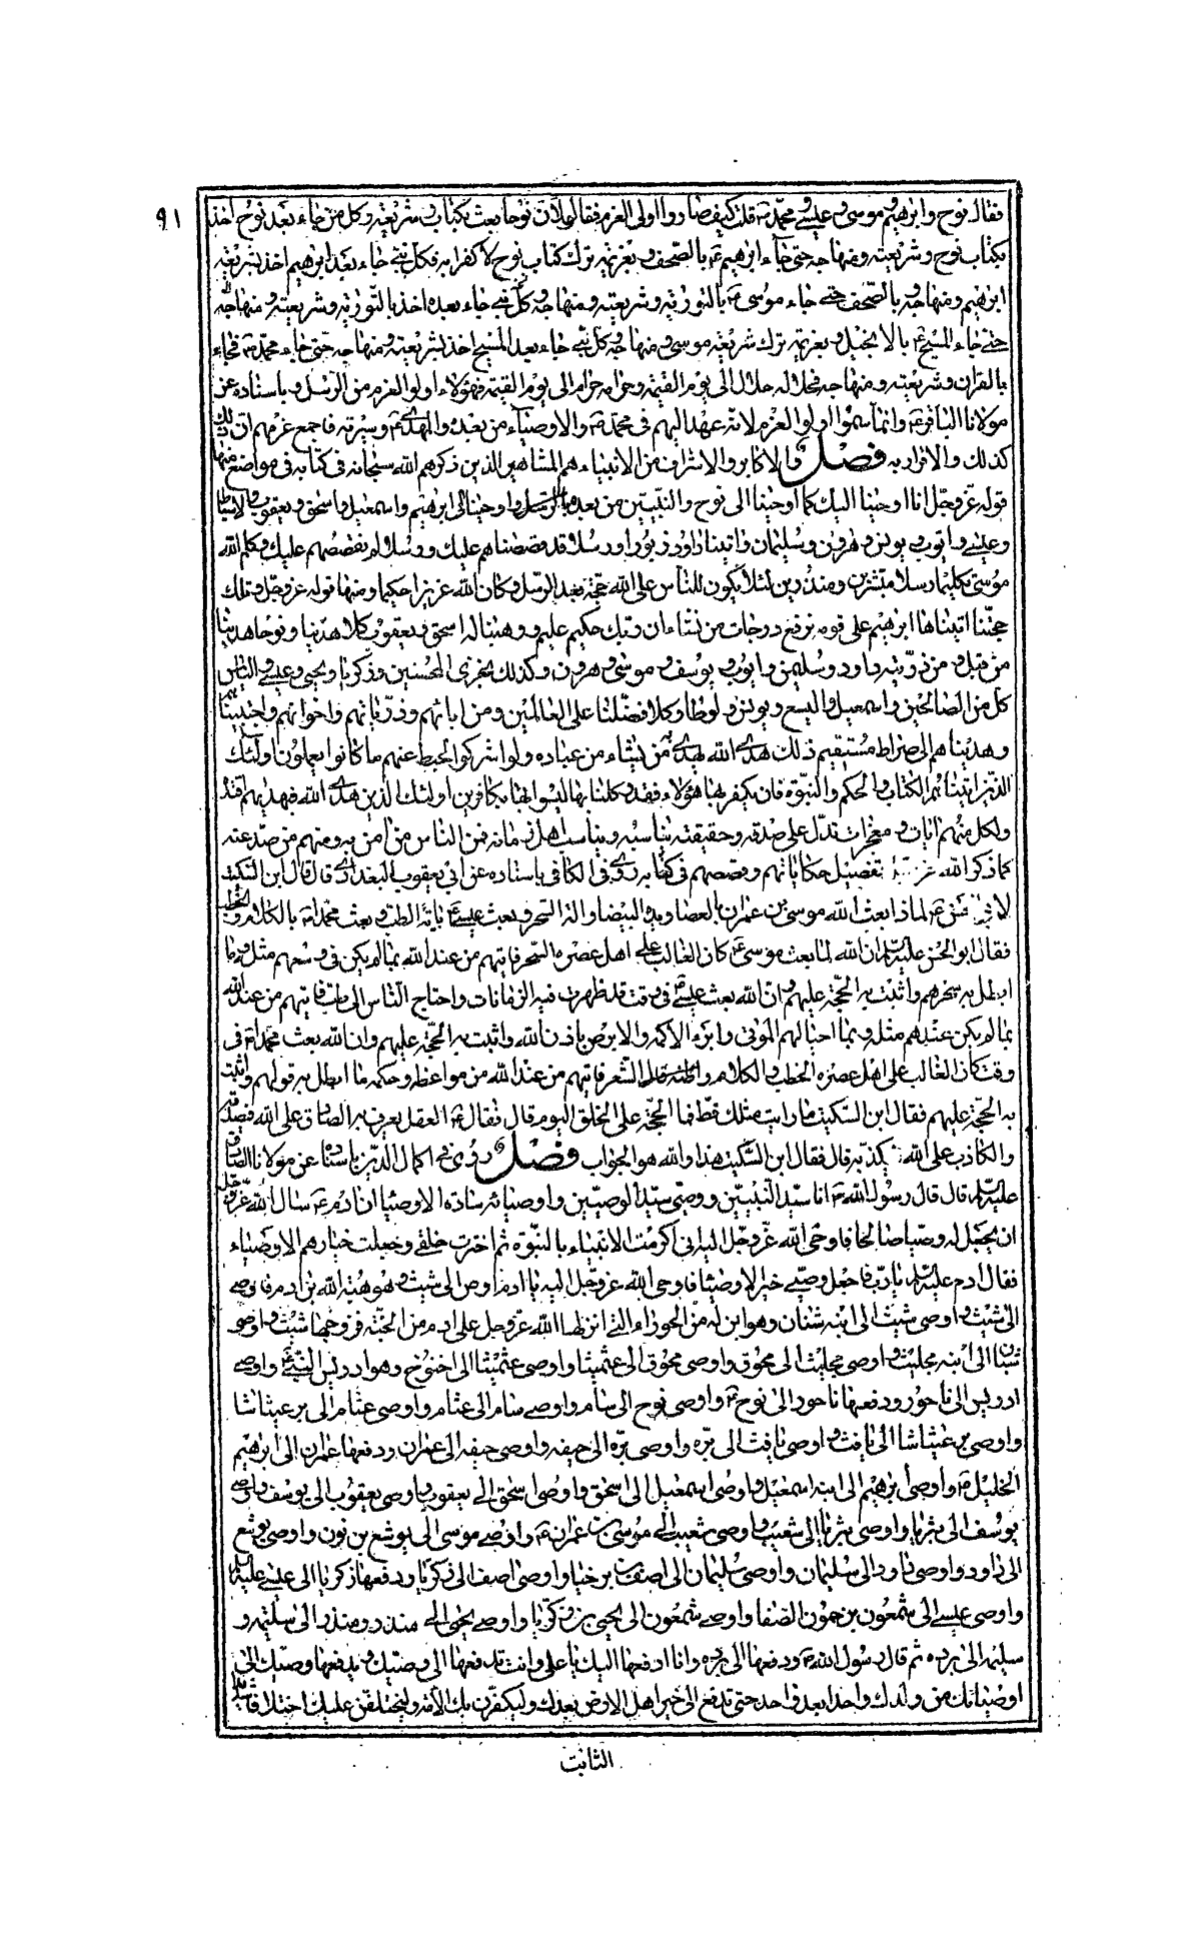 ٩١
فقال نوح وابرهيم وموسى وعيسى ومحمد ص قلت كيف صاروا اولى العزم فقال لان نوحا بعث بكتاب وشريعة وكل من جاء بعد نوح اخذ
بكتاب نوح وشريعته ومنهاجه حتى جاء ابرهيم ع بالصحف وبعزيمة ترك كتاب نوح لا كفرا به فكل نبى جاء بعد ابرهيم اخذ بشريعة
ابرهيم ومنهاجه وبالصحف حتى جاء موسى ع بالتورية وشريعته ومنهاجه وكل نبى جاء بعده اخذ بالتورية وشريعته ومنهاجه
حتى جاء المسيح ع بالانجيل وبعزيمة ترك شريعة موسى ومنهاجه وكل نبى جاء بعد المسيح اخذ بشريعته ومنهاجه حتى جاء محمد ص فجاء
بالقران وشريعته ومنهاجه فحلاله حلال الى يوم القيمة وحرامه حرام الى يوم القيمة فهؤلاء اولوا العزم من الرسل وباسناده عن
مولانا الباقر ع وانما سموا اولوا العزم لانه عهد اليهم فى محمد ص والاوصياء من بعده والمهدى ع وسيرته فاجمع عزمهم ان ذلك
كذلك والاقرار به فصل والاكابر والاشراف من الانبياء هم المشاهير الذين ذكرهم الله سبحانه فى كتابه فى مواضع منها
قوله عز وجل انا اوحينا اليك كما اوحينا الى نوح والنبيين من بعده واوحينا الى ابرهيم واسمعيل واسحق ويعقوب والاسباط
وعيسى وايوب ويونس وهرون وسليمان واتينا داود زبورا ورسلا قد قصصناهم عليك ورسلا لم نقصصهم عليك وكلم الله
موسى تكليما رسلا مبشرين ومنذرين لئلا يكون للناس على الله حجة بعد الرسل وكان الله عزيزا حكيما ومنها قوله عز وجل وتلك
حجتنا اتيناها ابرهيم على قومه نرفع درجات من نشاء ان ربك حكيم عليم ووهبنا له اسحق ويعقوب كلا هدينا ونوحا هدينا
من قبل ومن ذريته داود وسليمن وايوب ويوسف وموسى وهرون وكذلك نجزى المحسنين وزكريا ويحيى وعيسى والياس
كل من الصالحين واسمعيل واليسع ويونس ولوطا وكلا فضلنا على العالمين ومن ابائهم وذرياتهم واخوانهم واجتبيناهم
وهديناهم الى صراط مستقيم ذلك هدى الله يهدى به من يشاء من عباده ولو اشركوا لحبط عنهم ما كانوا يعملون اولئك
الذين اتيناهم الكتاب والحكم والنبوة فان يكفر بها هؤلاء فقد وكلنا بها قوما ليسوا بها بكافرين اولئك الذين هدى الله فبهديهم اقتده
ولكل منهم ايات ومعجزات تدل على صدقه وحقيقته يناسبه ويناسب اهل زمانه فمن الناس من امن به ومنهم من صد عنه
كما ذكر الله تفصيل حكاياتهم وقصصهم فى كتابه روى فى الكافى باسناده عن ابى يعقوب البغدادى قال قال ابن السكيت
لماذا بعث الله موسى بن عمران بالعصا ويده البيضاء والة السحر وبعث عيسى ع بالة الطب وبعث محمدا ص بالكلام والخطب
فقال ابو الحسن عليه السلم ان الله لما بعث موسى ع كان الغالب على اهل عصره السحر فاتيهم من عند الله بما لم يكن فى وسعهم مثله وما
ابطل به سحرهم واثبت به الحجة عليهم وان الله بعث عيسى ع فى وقت قد ظهرت فيه الزمانات واحتاج الناس الى الطب فاتيهم من عند الله
بما لم يكن عندهم مثله وبما احيا لهم الموتى وابرء الاكمه والابرص باذن الله واثبت به الحجة عليهم وان الله بعث محمدا ص فى
وقت كان الغالب على اهل عصره الخطب والكلام واظنه قال الشعر فاتيهم من عند الله من مواعظه وحكمه ما ابطل به قولهم واثبت
به الحجة عليهم فقال ابن السكيت ما رايت مثلك قط فما الحجة على الخلق اليوم قال فقال ع العقل يعرف به الصادق على الله فيصدقه
والكاذب على الله فيكذبه قال فقال ابن السكيت هذا والله هو الجواب فصل روى فى اكمال الدين باسناده عن مولانا الصادق
عليه السلم قال قال رسول الله ص انا سيد النبيين ووصيى سيد الوصيين واوصيائه سادة الاوصياء ان ادم ع سال الله عز وجل
ان يجعل له وصيا صالحا فاوحى الله عز وجل اليه انى اكرمت الانبياء بالنبوة ثم اخترت خلقى وجعلت خيارهم الاوصياء
فقال ادم عليه السلم يا رب فاجعل وصيى خير الاوصياء فاوحى الله عز وجل اليه يا ادم اوص الى شيث وهو هبة الله بن ادم فاوصى
الى شيث واوصى شيث الى ابنه شبان وهو ابن له من الحوراء التى انزلها الله عز وجل على ادم من الجنة فزوجها شيث واوصى
شبان الى ابنه مجليث واوصى مجليث الى محوق واوصى محوق الى عثميثا واوصى عثميثا الى اخنوخ وهو ادريس النبى ع واوصى
ادريس الى ناحور ودفعها ناحور الى نوح ع واوصى نوح الى سام واوصى سام الى عثامر واوصى عثامر الى برعيثاشا
واوصى برعيثاشا الى يافث واوصى يافث الى بره واوصى بره الى جفيه واوصى جفيه الى عمران ودفعها عمران الى ابرهيم
الخليل ع واوصى ابرهيم الى ابنه اسمعيل واوصى اسمعيل الى اسحق واوصى اسحق الى يعقوب واوصى يعقوب الى يوسف واوصى
يوسف الى بثريا واوصى بثريا الى شعيب واوصى شعيب الى موسى بن عمران ع واوصى موسى الى يوشع بن نون واوصى يوشع
الى داود واوصى داود الى سليمان واوصى سليمان الى اصف بن برخيا واوصى اصف الى زكريا ودفعها زكريا الى عيسى عليه السلم
واوصى عيسى الى شمعون بن حمون الصفا واوصى شمعون الى يحيى بن زكريا واوصى يحيى الى منذر ومنذر الى سليمه و
سليمه الى برده ثم قال رسول الله ص ودفعها الى برده وانا ادفعها اليك يا على وانت تدفعها الى وصيك ويدفعها وصيك الى
اوصيائك من ولدك واحدا بعد واحد حتى تدفع الى خير اهل الارض بعدك وليكفرن بك الامة وليختلفن عليك اختلافا شديدا
الثابت